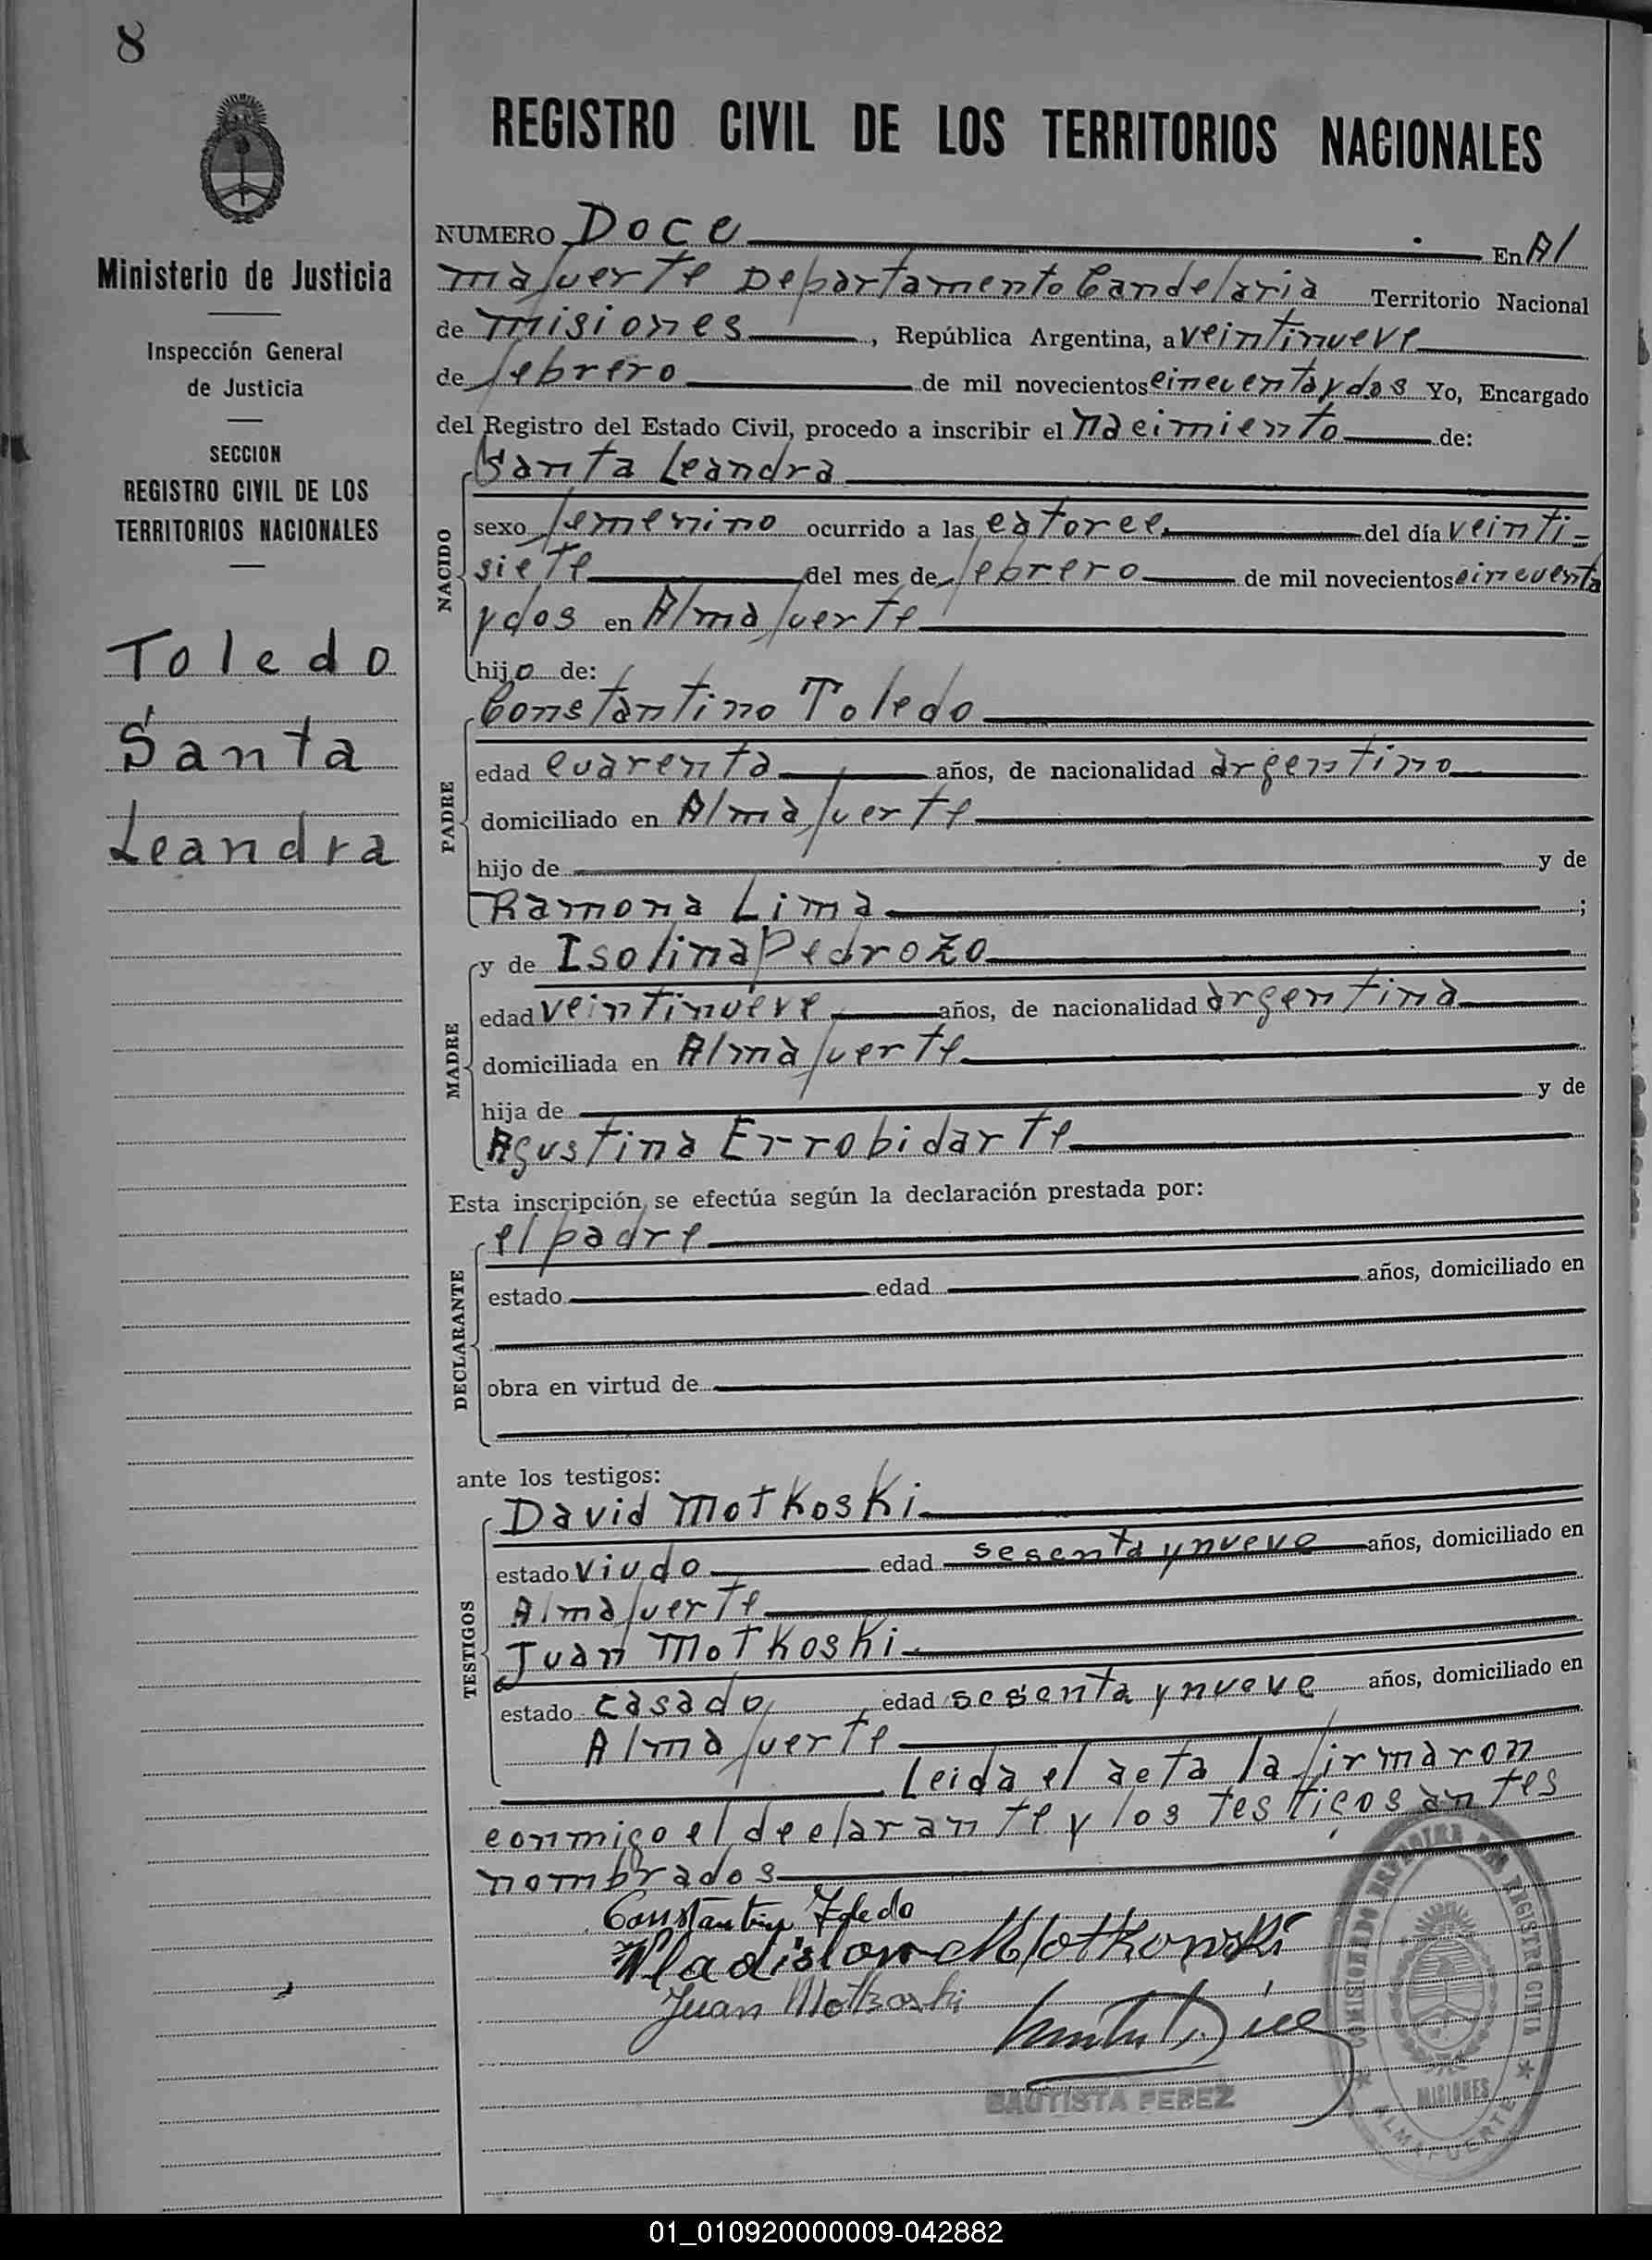 8
REGISTRO CIVIL DE LOS TERRITORIOS NACIONALES
Ministerio de Justicia
Inspección General
de Justicia
SECCION
REGISTRO CIVIL DE LOS
TERRITORIOS NACIONALES
Toledo
Santa
Leandra
NUMERO Doce En Al
mafuerte Departamento Candelaria Territorio Nacional
de misiones, República Argentina, a veintinueve
de febrero de mil novecientos cincuenta y dos Yo, Encargado
del Registro del Estado Civil, procedo a inscribir el nacimiento de:
NACIDO
Santa Leandra
sexo femenino ocurrido a las catorce del día veinti=
siete del mes de febrero de mil novecientos cincuenta
y dos en Almafuerte
hijo de:
PADRE
Constantino Toledo
edad cuarenta años, de nacionalidad argentino
domiciliado en Almafuerte
hijo de y de
Ramona Lima ;
MADRE
y de Isolina Pedrozo
edad veintinueve años, de nacionalidad argentina
domiciliada en Almafuerte
hija de y de
Agustina Errobidarte
Esta inscripción se efectúa según la declaración prestada por:
DECLARANTE
el padre
estado edad años, domiciliado en
obra en virtud de
ante los testigos:
TESTIGOS
David Motkoski
estado Viudo edad sesenta y nueve años, domiciliado en
Almafuerte
Juan Motkoski
estado casado edad sesenta y nueve años, domiciliado en
Almafuerte
Leida el acta la firmaron
conmigo el declarante y los testigos antes
nombrados
Constantino Toledo
Wladislao Motkowski
Juan Motkoski
BAUTISTA PEREZ
REGISTRO CIVIL
MISIONES
ALMAFUERTE
01_010920000009-042882